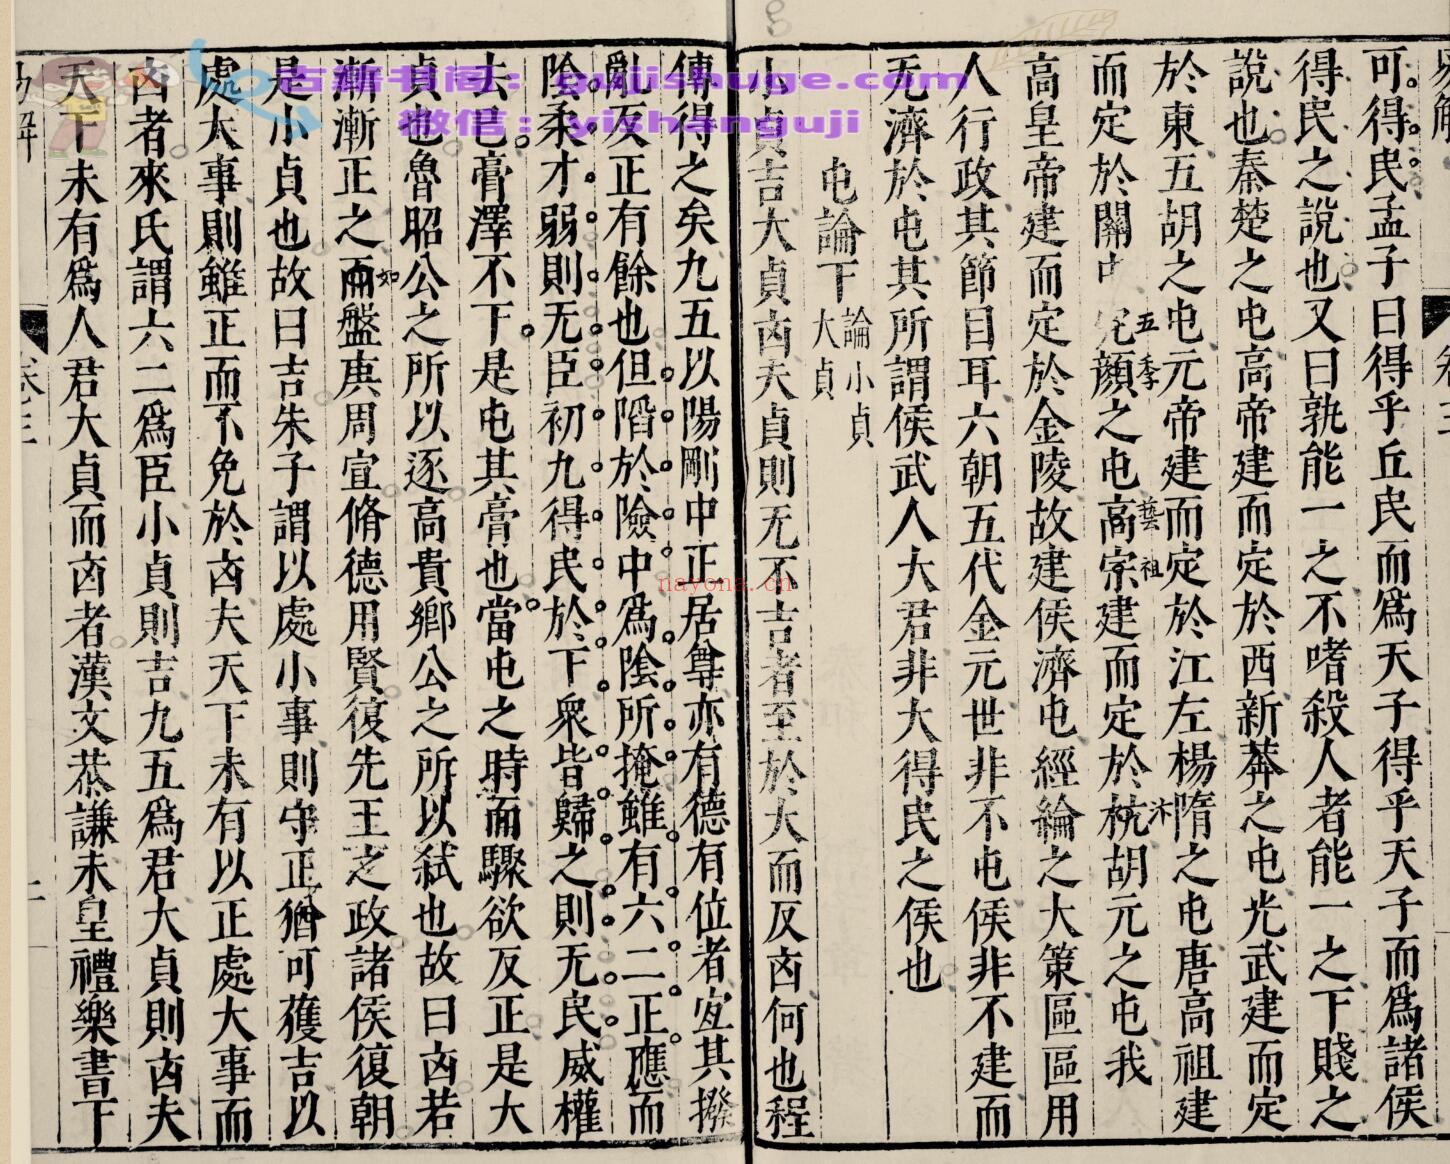 可得民孟子曰得乎丘民而爲天子得乎天子而爲諸侯
得民之說也又曰孰能一之不嗜殺人者能一之下賤之
說也秦楚之屯高帝建而定於西新莽之屯光武建而定
於東五胡之屯元帝建而定於江左楊隋之屯唐高祖建
而定於關中五季之屯藝祖建而定於汴完顏之屯高宗建而定於杭胡元之屯我
高皇帝建而定於金陵故建侯濟屯經綸之大策區區用
人行政其節目耳六朝五代金元世非不屯侯非不建而
无濟於屯其所謂侯武人大君非大得民之侯也
屯論下 論小貞大貞
小貞吉大貞凶夫貞則无不吉者至於大而反凶何也程
傳得之矣九五以陽剛中正居尊亦有德有位者宐其撥
亂反正有餘也但陷於險中爲陰所掩雖有六二正應而
陰柔才弱則无臣初九得民於下衆皆歸之則无民威權
去已膏澤不下是屯其膏也當屯之時而驟欲反正是大
貞也魯昭公之所以逐高貴鄉公之所以弒也故曰凶若
漸漸正之如盤庚周宣脩德用賢復先王之政諸侯復朝
是小貞也故曰吉朱子謂以處小事則守正猶可獲吉以
處大事則雖正而不免於凶夫天下未有以正處大事而
凶者來氏謂六二爲臣小貞則吉九五爲君大貞則凶夫
天下未有爲人君大貞而凶者漢文恭謙未皇禮樂晝下
卷三
古籍书阁：gujishuge.com
微信：yishanguji
nayona.cn